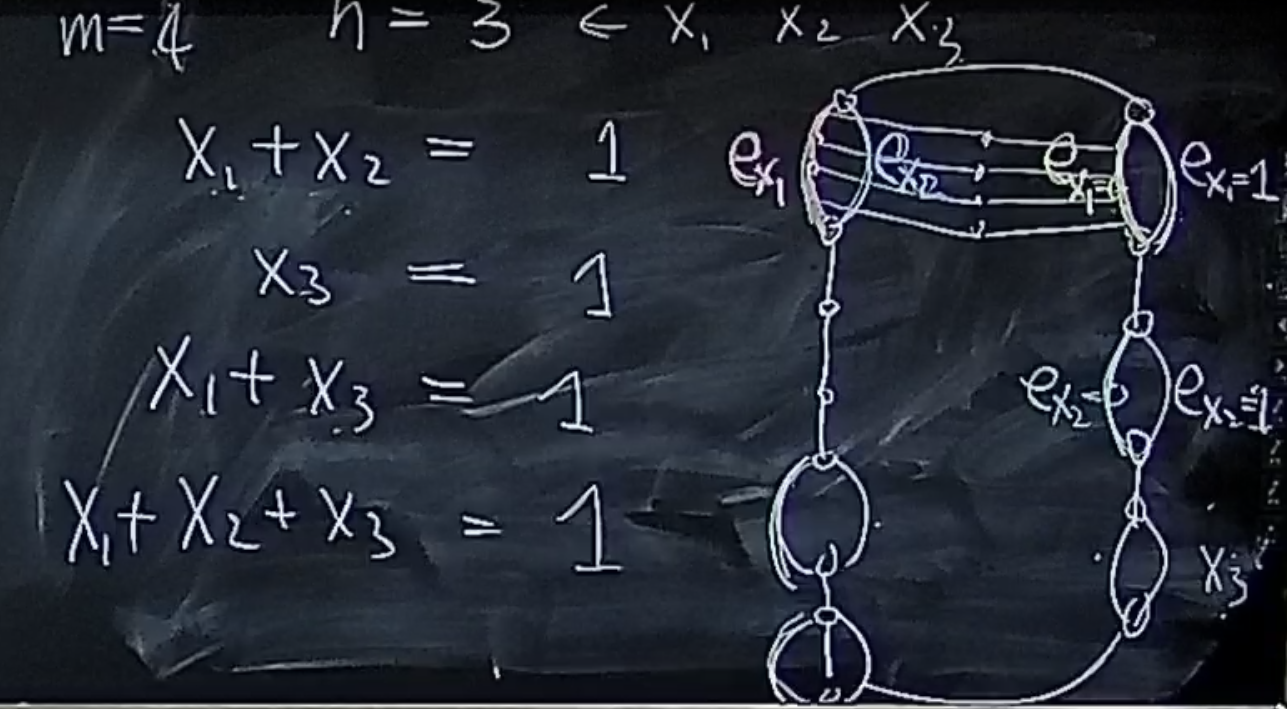 m=4 n = 3 ← x₁ x₂ x₃
x₁ + x₂ = 1
x₃ = 1
x₁ + x₃ = 1
x₁ + x₂ + x₃ = 1
eₓ₁ eₓ₂ eₓ₁₌₀ eₓ₁₌₁
eₓ₂₌₀ eₓ₂₌₁
x₃